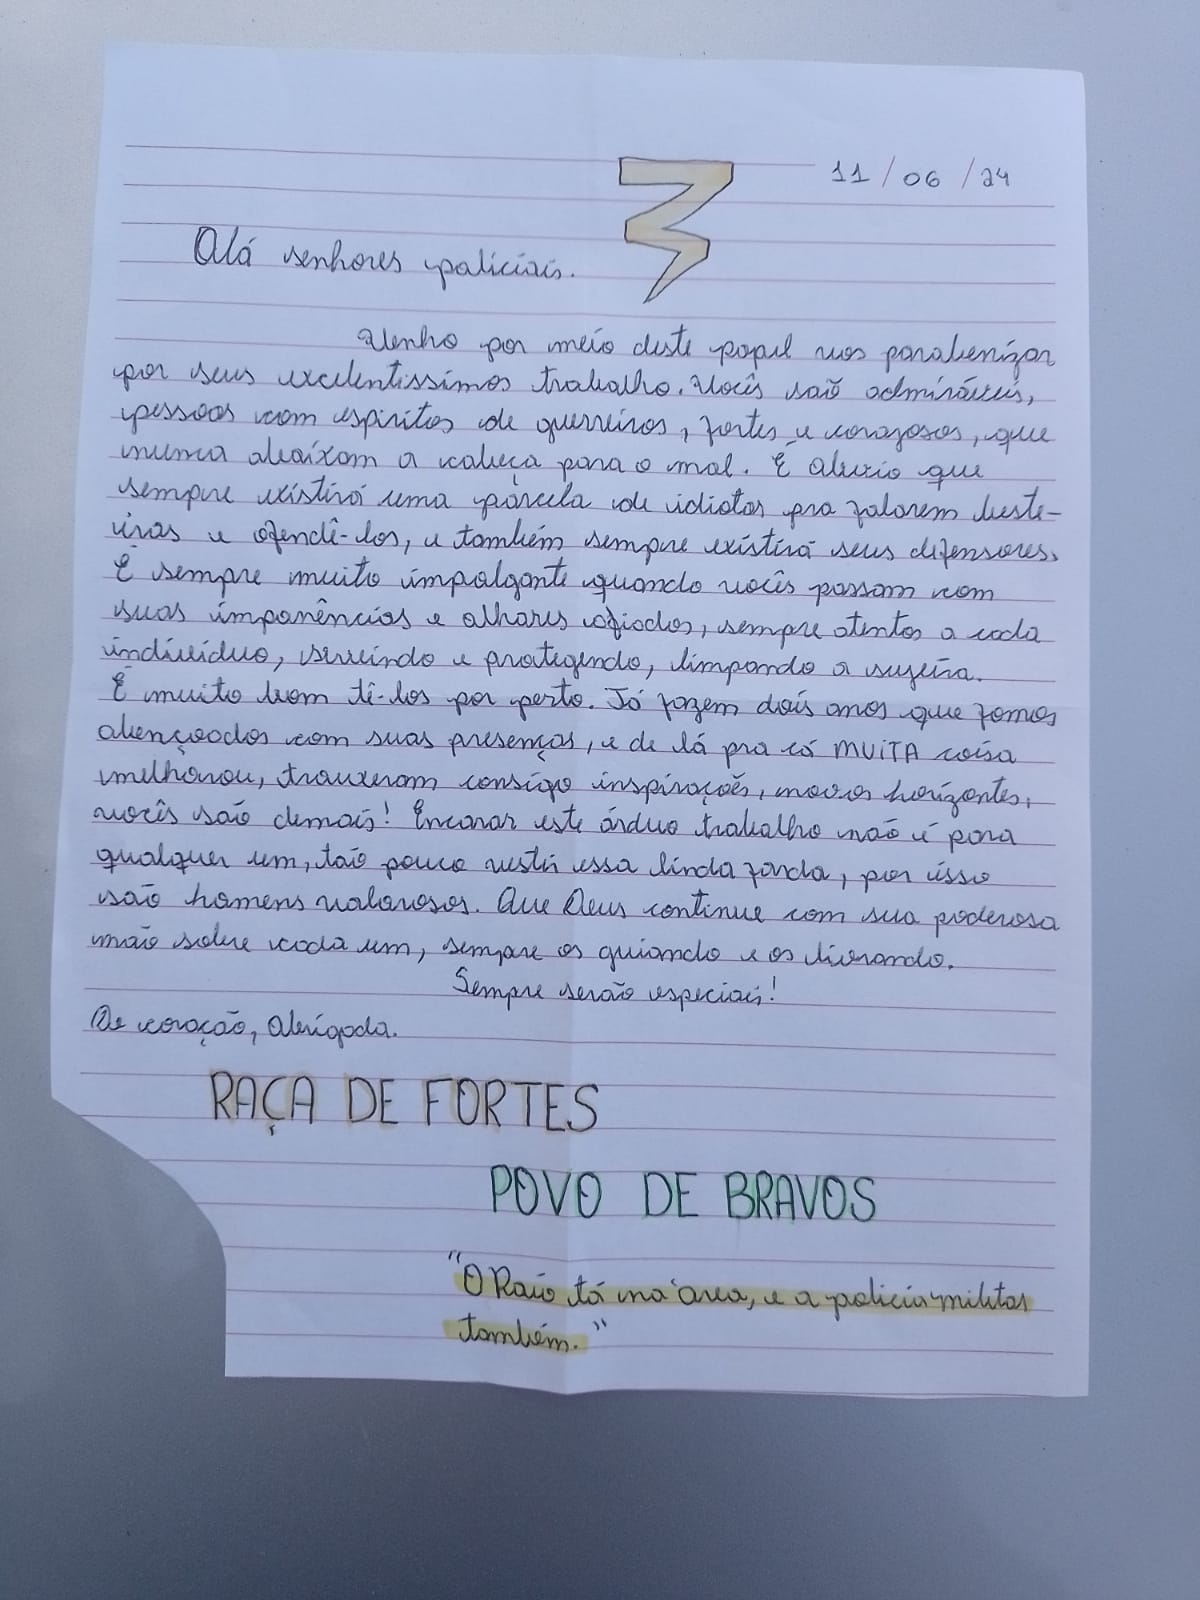 11/06/24
Olá senhores policiais.
Venho por meio deste papel vos parabenizar
por seus excelentissimos trabalho. Vocês são admiráveis,
pessoas com espiritos de guerreiros, fortes e corajosos, que
nunca abaixam a cabeça para o mal. É obvio que
sempre existirá uma parcela de idiotas pra falarem beste-
iras e ofendê-los, e também sempre existirá seus defensores.
É sempre muito impalgante quando vocês passam com
suas imponências e olhares afiados, sempre atentos a cada
individuo, servindo e protegendo, limpando a sujeira.
É muito bom tê-los por perto. Já fazem dois anos que fomos
abençoados com suas presenças, e de lá pra cá MUITA coisa
melhorou, trouxeram consigo inspirações, novos horizontes,
vocês são demais! Encarar este árduo trabalho não é para
qualquer um, tão pouco vestir essa linda farda, por isso
são homens valorosos. Que Deus continue com sua poderosa
mão sobre cada um, sempre os guiando e os livrando.
Sempre serão especiais!
De coração, Obrigada.
RAÇA DE FORTES
POVO DE BRAVOS
"O Raio tá na área, e a policia militar
também."